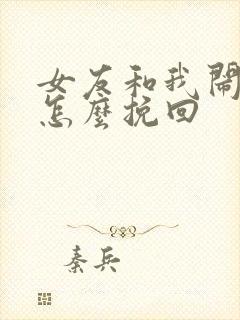 女友和我鬧
怎麼挽回
秦兵